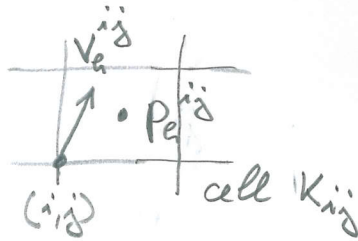 V_h^{ij}
P_h^{ij}
(i,j)
cell K_{ij}